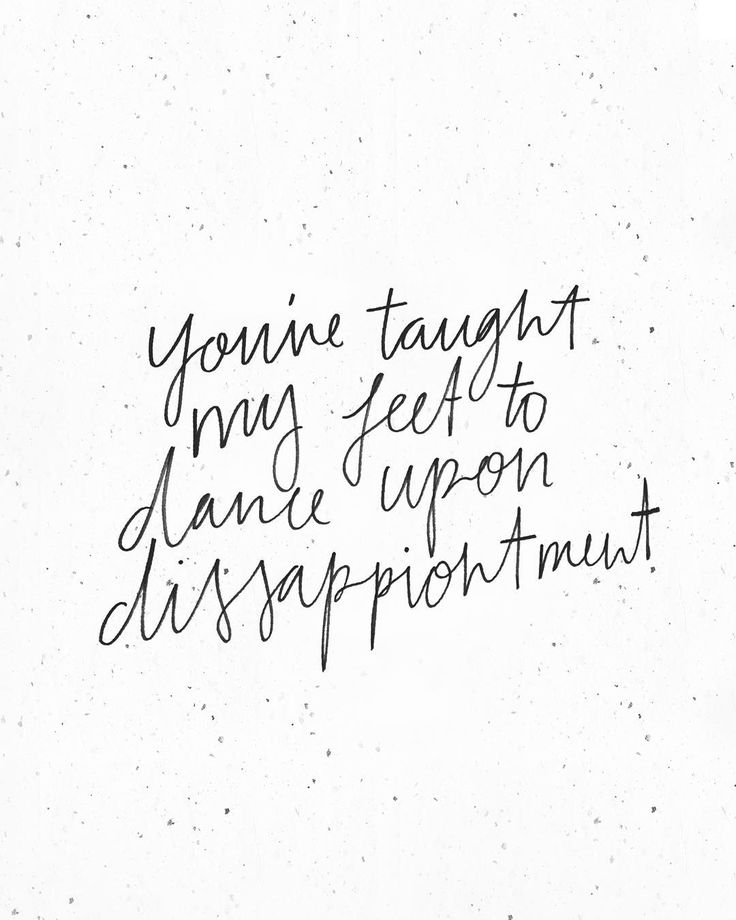 you've taught
my feet to
dance upon
dissappiontment